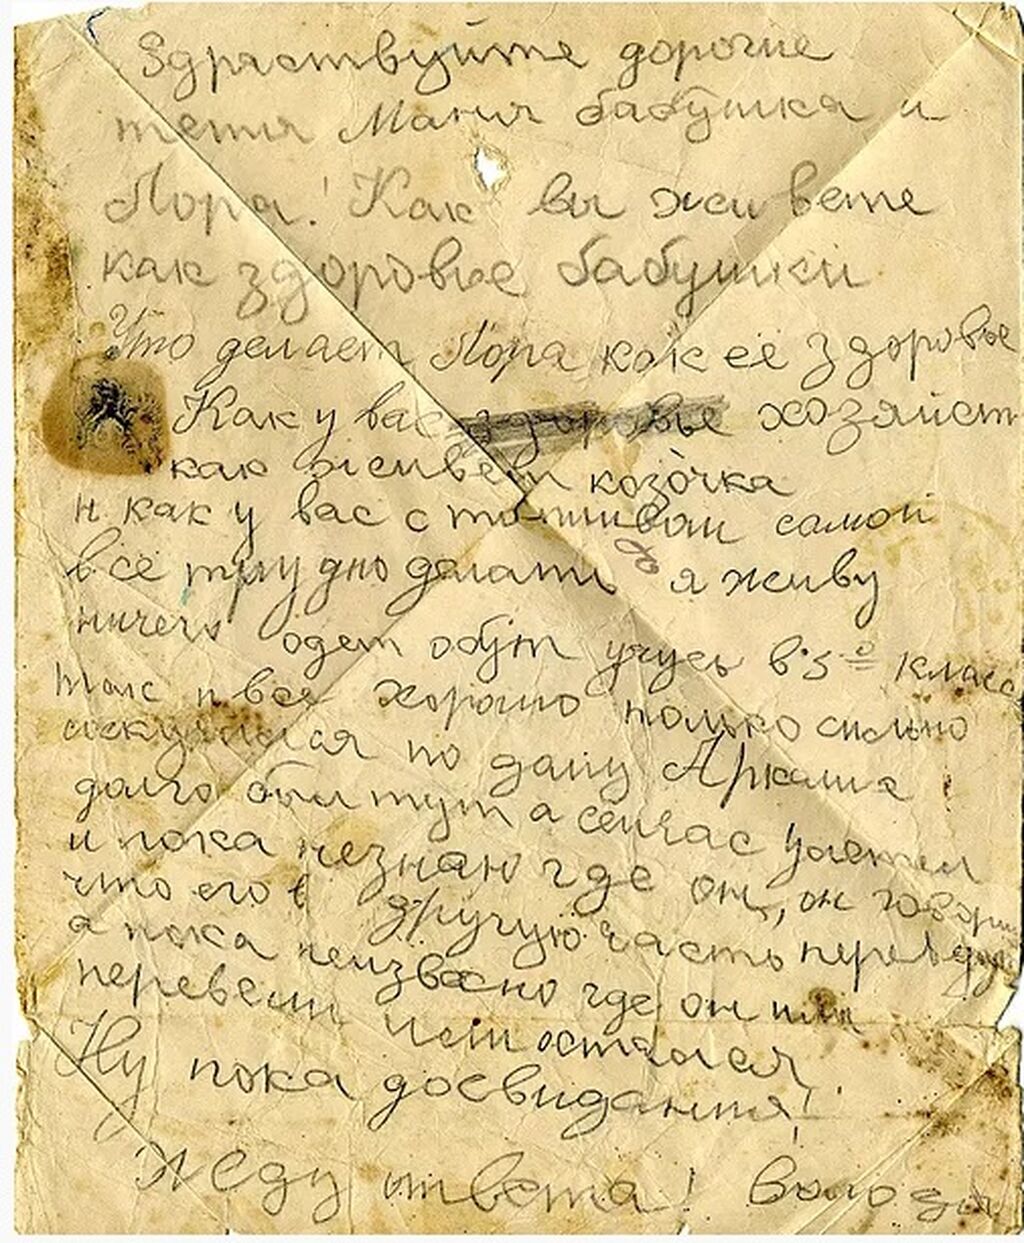 Здраствуйте дорогие
тетя Маня бабушка и
Лора! Как вы живете
как здоровье бабушки
Что делает Лора как её здоровье
Как у вас здоровье хозяйст
как живёт козочка
и как у вас с топливом самой
всё трудно делать я живу
ничего одет обут учусь в 5 класс
так и всё хорошо только сильно
соскучился по дому Аркашка
долго был тут а сейчас улетел
и пока незнаю где он, он говорил
что его в другую часть переведут
а пока неизвесно где он или
перевели или остался
Ну пока досвидания!
Жду ответа! Володя